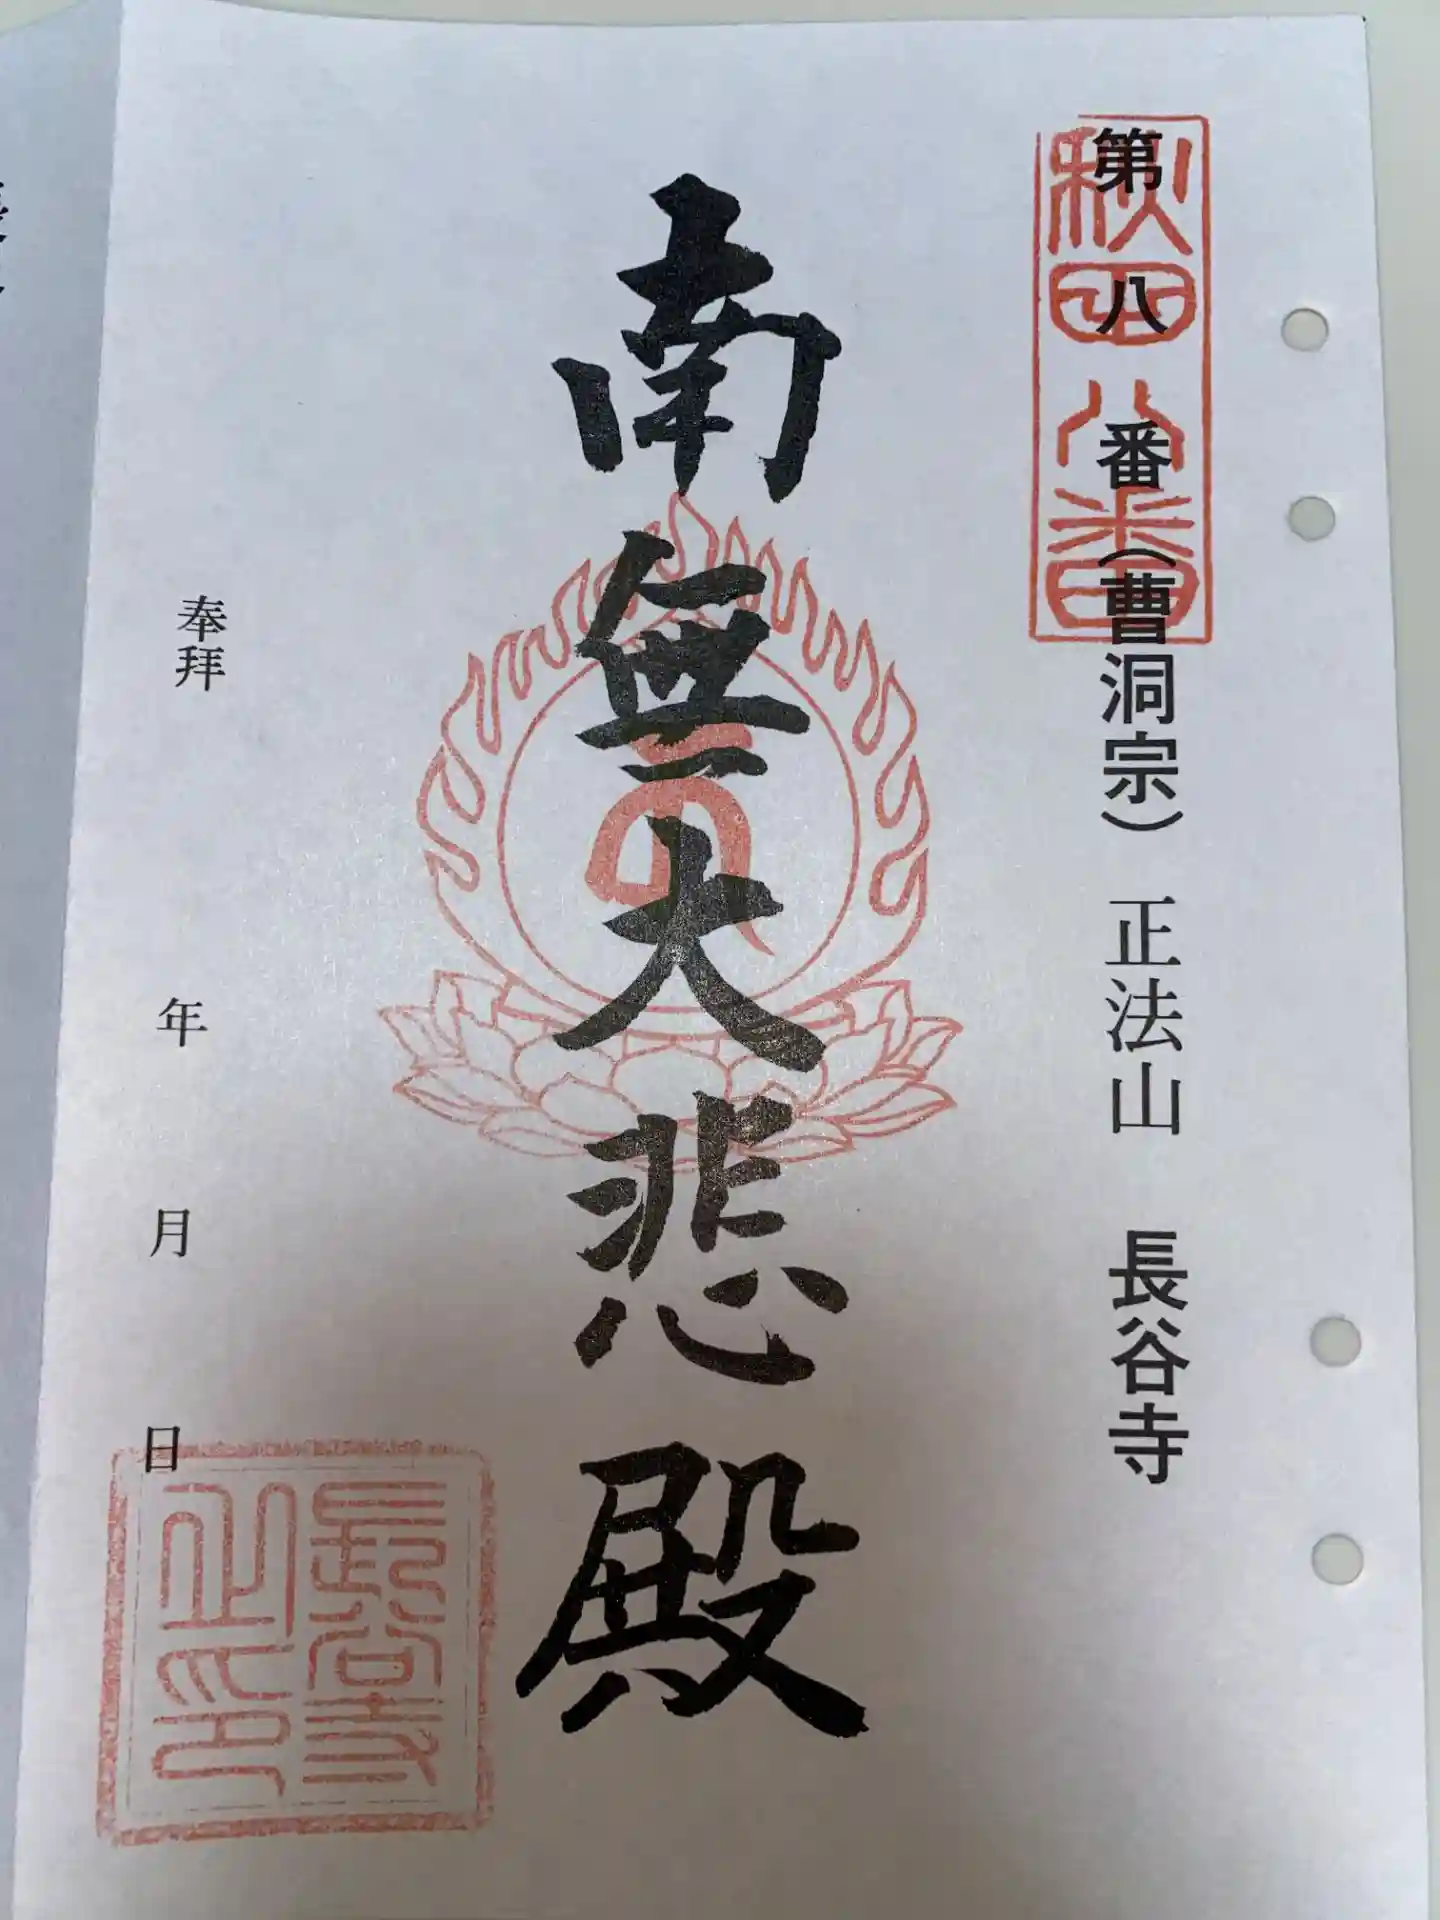 第八番（曹洞宗） 正法山 長谷寺
秋田八番
南無大悲殿
奉拝 年 月 日
長谷寺
之印